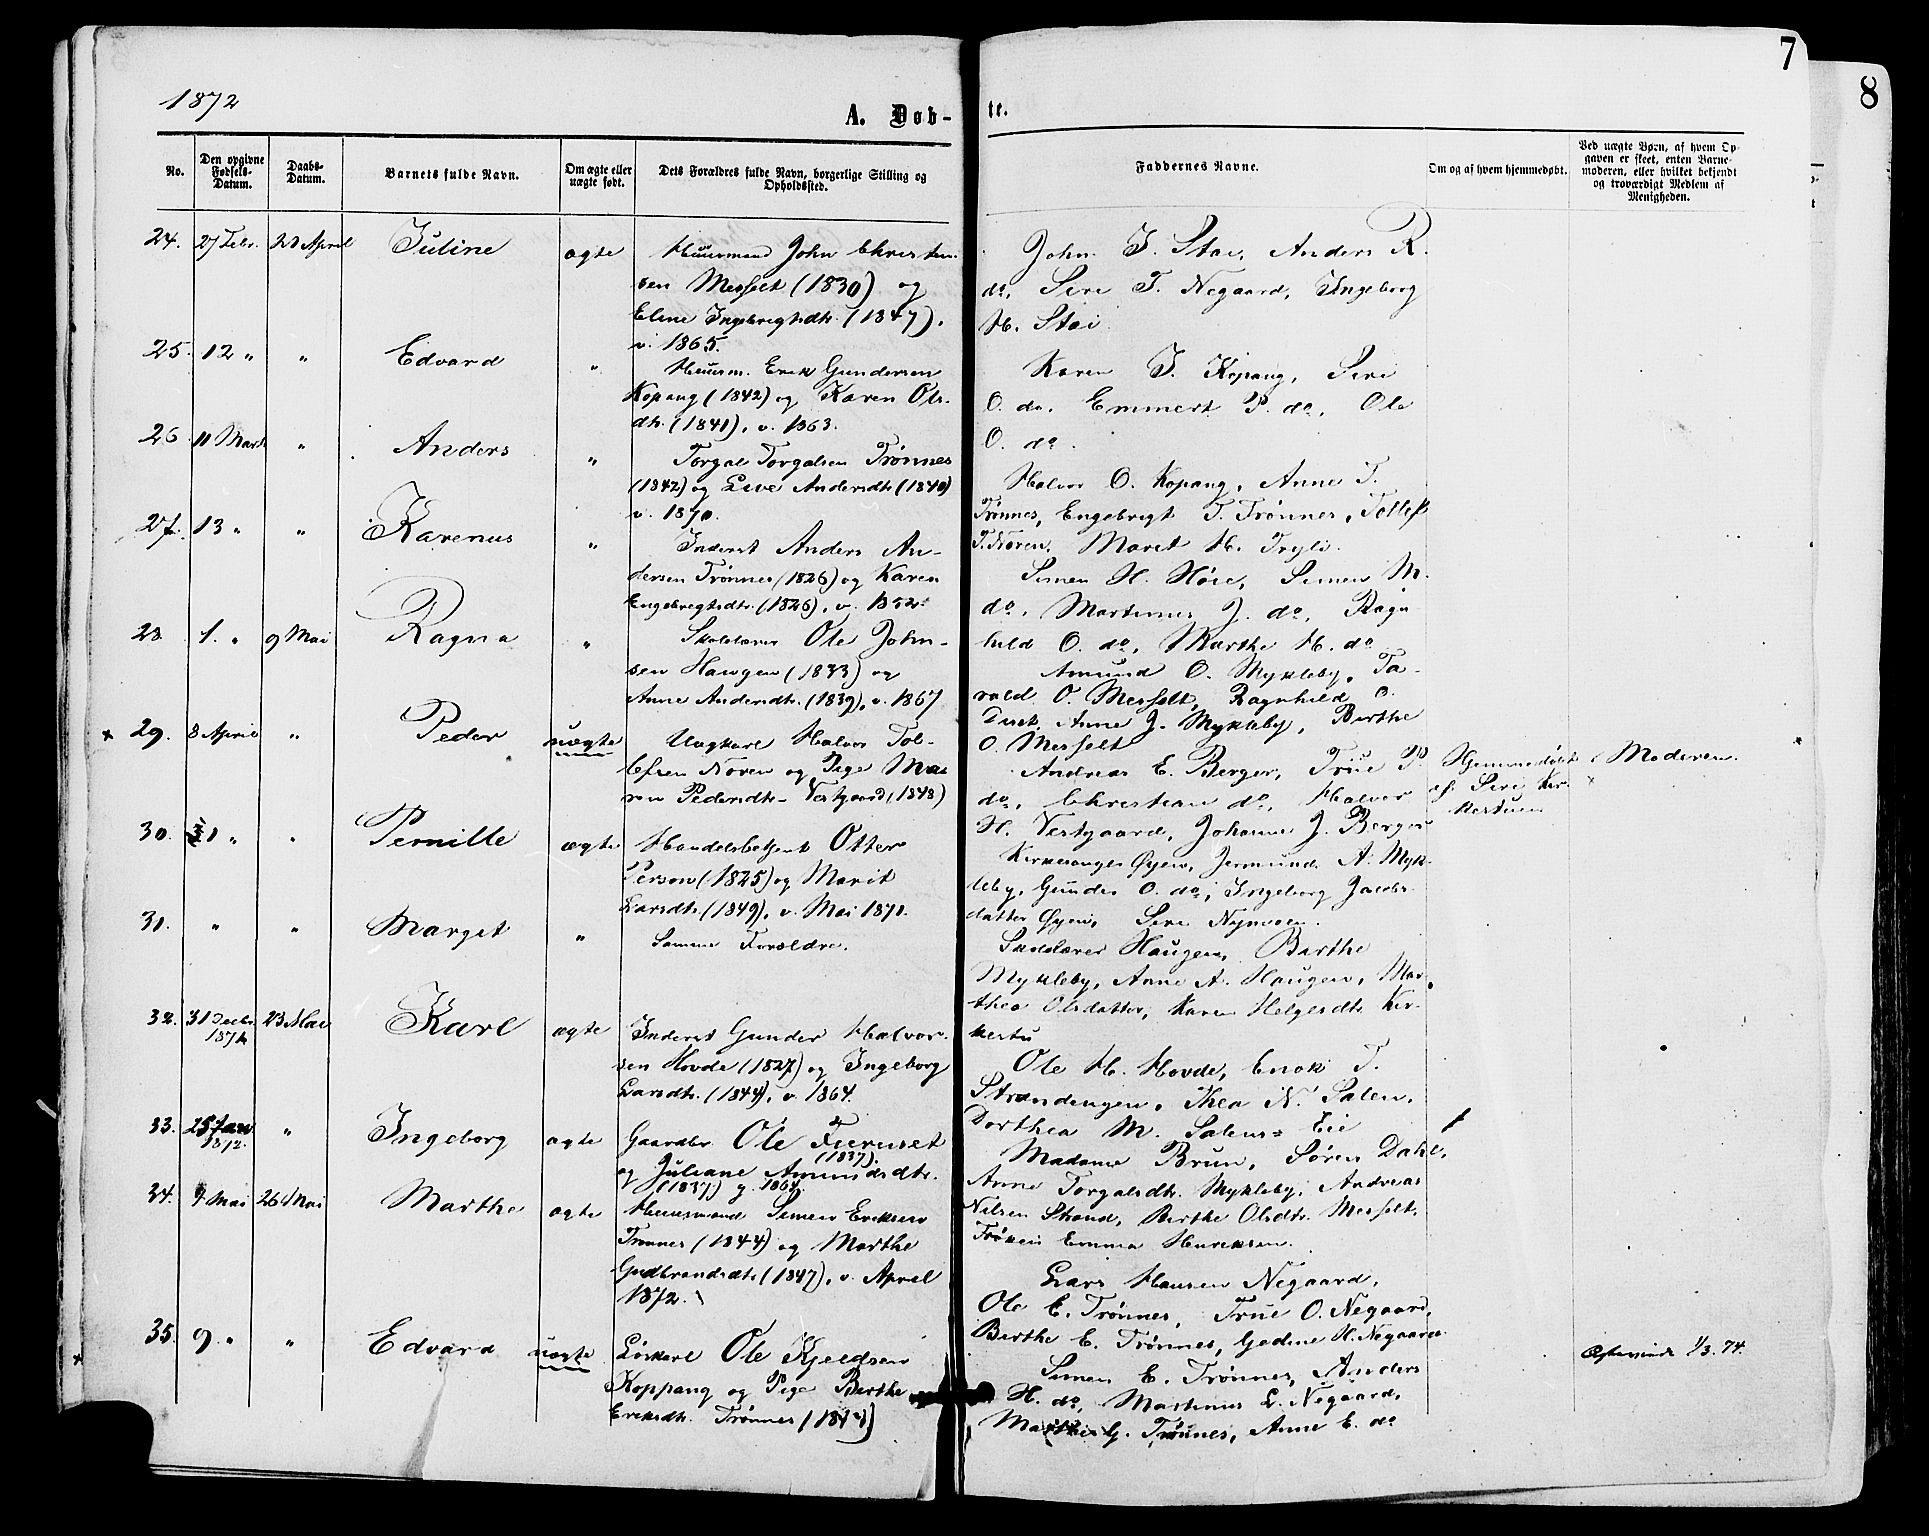 7
8
1872
A. Døb-
te.
No.
Den opgivne Fødsels-Datum.
Daabs-Datum.
Barnets fulde Navn.
Om ægte eller uægte født.
Dets Forældres fulde Navn, borgerlige Stilling og Opholdssted.
Faddernes Navne.
Om og af hvem hjemmedøbt.
Ved uægte Børn, af hvem Opgaven er skeet, enten Barnemoderen, eller hvilket bekjendt og troværdigt Medlem af Menigheden.
24. 27 Febr. 28 April Juline ægte
Huusmand John Christen-
sen Messelt (1830) og
Eline Ingebrigtsdtr. (1847),
v. 1865.
John J. Stai, Anders R.
do, Siri T. Negaard, Ingeborg
H. Stai
25. 12 " " Edvard "
Huusm. Erik Gundersen
Kopang (1842) og Karen Ols-
dtr. (1841), v. 1863.
Karen J. Kopang, Siri
O. do, Emmert P. do, Ole
O. do.
26 11 Marts " Anders "
Torgal Torgalsen Trønnes
(1842) og Live Andersdtr. (1840)
v. 1870.
Halvor O. Kopang, Anne T.
Trønnes, Engebrigt T. Trønnes, Tollef
T. Noren, Marit H. Tryli.
27. 13 " " Karenus "
Inderst Anders An-
dersen Trønnes (1826) og Karen
Engebrigtsdtr. (1826), v. 1852.
Simen H. Hóie, Simen M.
do, Martinus J. do, Ragn
hild O. do, Marthe H. do
28 1. " 9 Mai Ragna "
Skolelærer Ole John-
sen Haugen (1833) og
Anne Andersdtr. (1839), v. 1867
Amund O. Mykleby, Ta-
rald O. Messelt, Ragnhild O.
Anne J. Mykleby, Berthe
O. Messelt
x 29. 8 April " Peder uægte
Ungkarl Halvor Tol-
lefsen Noren og Pige Ma-
ren Pedersdtr. Vestgaard (1848)
Andreas E. Berger, True P.
do, Christian do, Halvor
H. Vestgaard, Johanne J. Berger
Hjemmedøbt
af Siri Kir-
kestuen
Moderen.
30. 31 " " Pernille ægte
Handelsbetjent Otter
Person (1825) og Marit
Larsdtr. (1849), v. Mai 1871.
Kirkesanger Øyen, Jermund A. Myk-
leby, Gunder O. do, Ingeborg Jacobs-
datter Øyen, Siri Nymoen.
31. " " Marget "
Samme Forældre.
Skolelærer Haugen, Berthe
Mykleby, Anne A. Haugen, Mar-
thea Olsdatter, Karen Helgesdtr. Kir-
kestu
32. 31 Decbr. 1871 23 Mai Karl ægte
Inderst Gunder Halvor-
sen Hovde (1827) og Ingeborg
Larsdtr. (1844), v. 1864.
Ole H. Hovde, Enok T.
Strandengen, Thea N. Salen,
Dorthea M. Salens= Eie
33. 25 Jan 1872. " Ingeborg ægte
Gaardbr. Ole Furuset
(1837).
og Juliane Amundsdtr.
(1837) g. 1864.
Madame Brun, Søren Dahl,
Anne Torgalsdtr. Mykleby, Andreas
Nilsen Strand, Berthe Olsdtr. Messelt,
Frøken Emma Henriksen.
34. 7 Mai 26 Mai Marthe ægte
Huusmand Simen Eriksen
Trønnes (1844) og Marthe
Gudbrandsdtr. (1847), v. April
1872.
Lars Hansen Negaard,
Ole E. Trønnes, True O. Negaard,
Berthe E. Trønnes, Gudine H. Negaard
x 35. 9 " " Edvard uægte
Løskarl Ole Kjeldsen
Koppang og Pige Berthe
Eriksdtr. Trønnes (1844)
Simen E. Trønnes, Anders
H. do, Martinus L. Negaard,
Marthe G. Trønnes, Anne E. do
1/3.74.